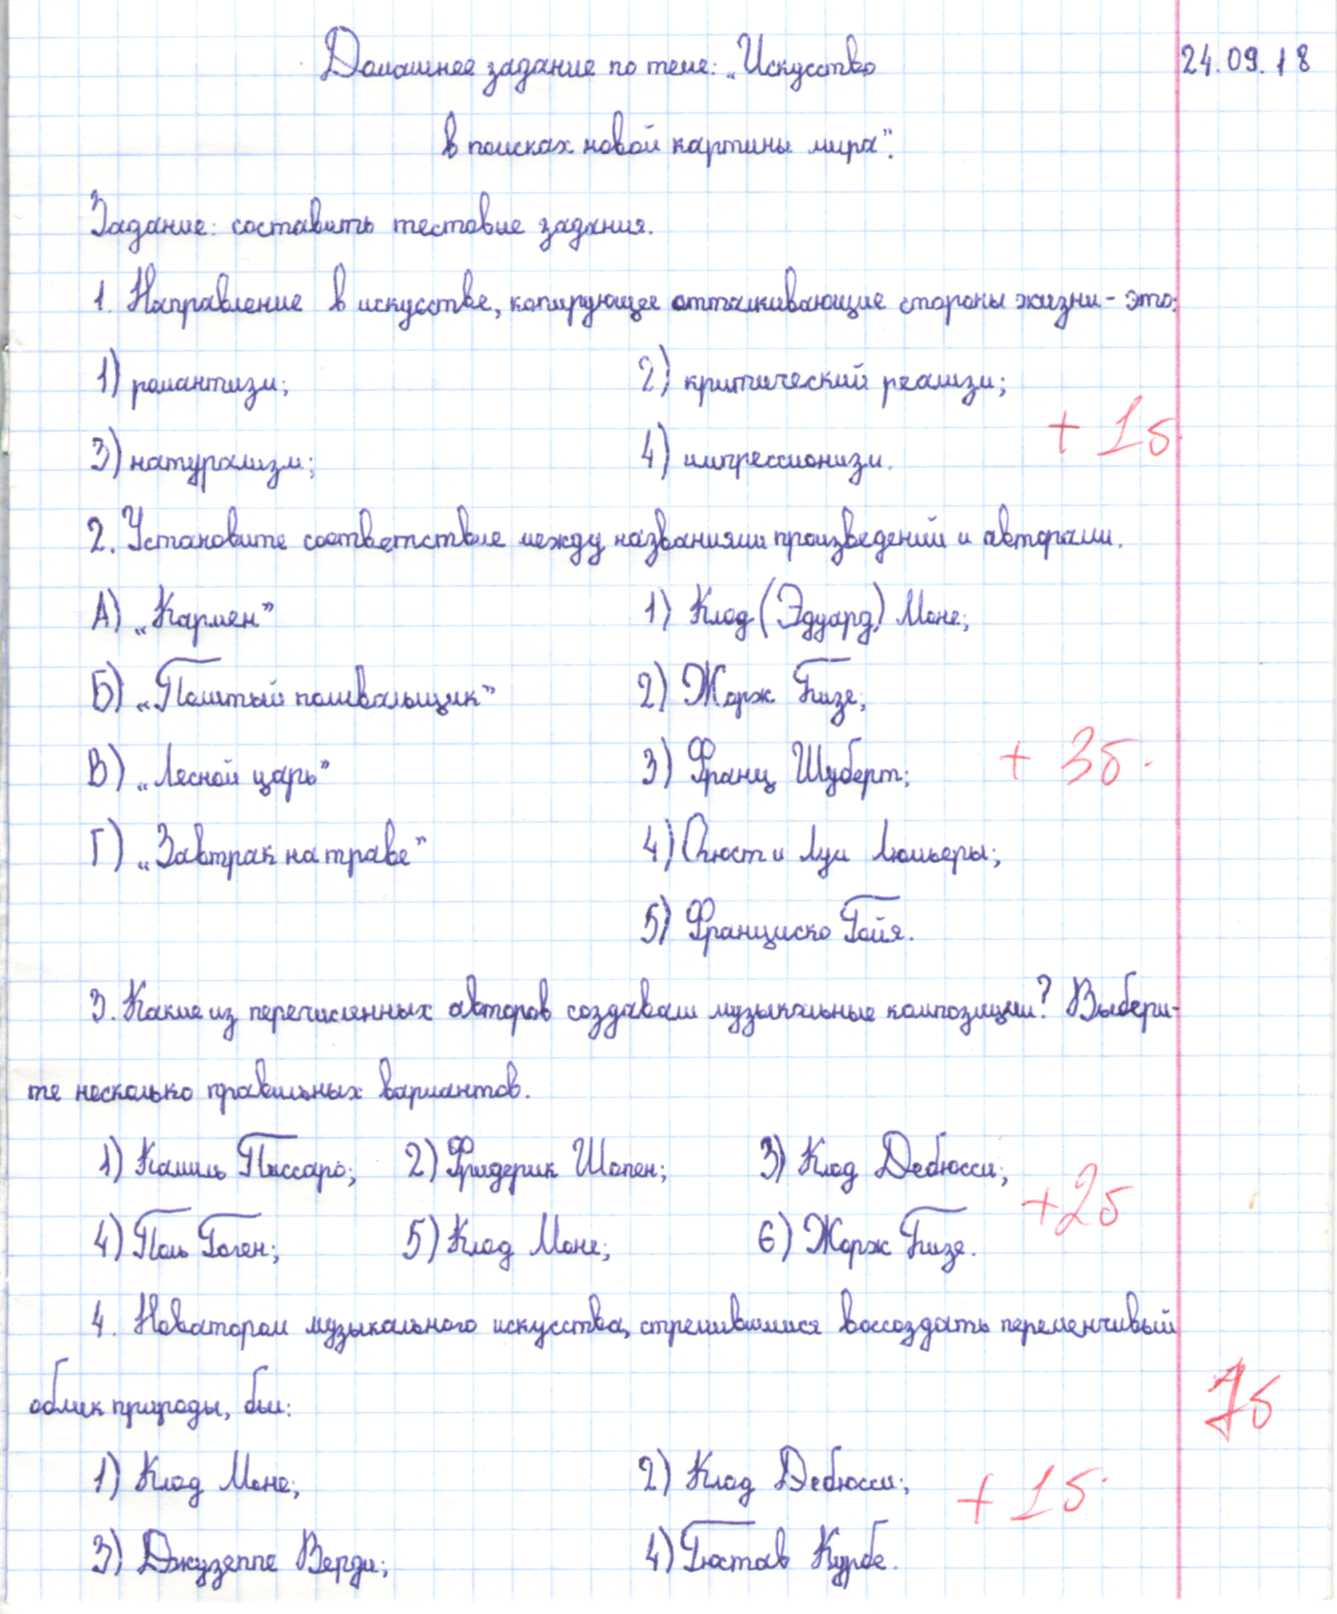 Домашнее задание по теме: „Искусство 24.09.18
в поисках новой картины мира".
Задание: составить тестовые задания.
1. Направление в искусстве, копирующее отталкивающие стороны жизни - это:
1) романтизм; 2) критический реализм;
3) натурализм; 4) импрессионизм.
+ 1б.
2. Установите соответствие между названиями произведений и авторами.
А) „Кармен" 1) Клод (Эдуард) Моне;
Б) „Политый поливальщик" 2) Жорж Бизе;
В) „Лесной царь" 3) Франц Шуберт; + 3б.
Г) „Завтрак на траве" 4) Огюст и Луи Люмьеры;
5) Франциско Гойя.
3. Какие из перечисленных авторов создавали музыкальные композиции? Выбери-
те несколько правильных вариантов.
1) Камиль Писсаро; 2) Фридерик Шопен; 3) Клод Дебюсси;
+2б
4) Поль Гоген; 5) Клод Моне; 6) Жорж Бизе.
4. Новатором музыкального искусства, стремившимися воссоздать переменчивый
облик природы, был: 7б
1) Клод Моне; 2) Клод Дебюсси; + 1б.
3) Джузеппе Верди; 4) Гюстав Курбе.